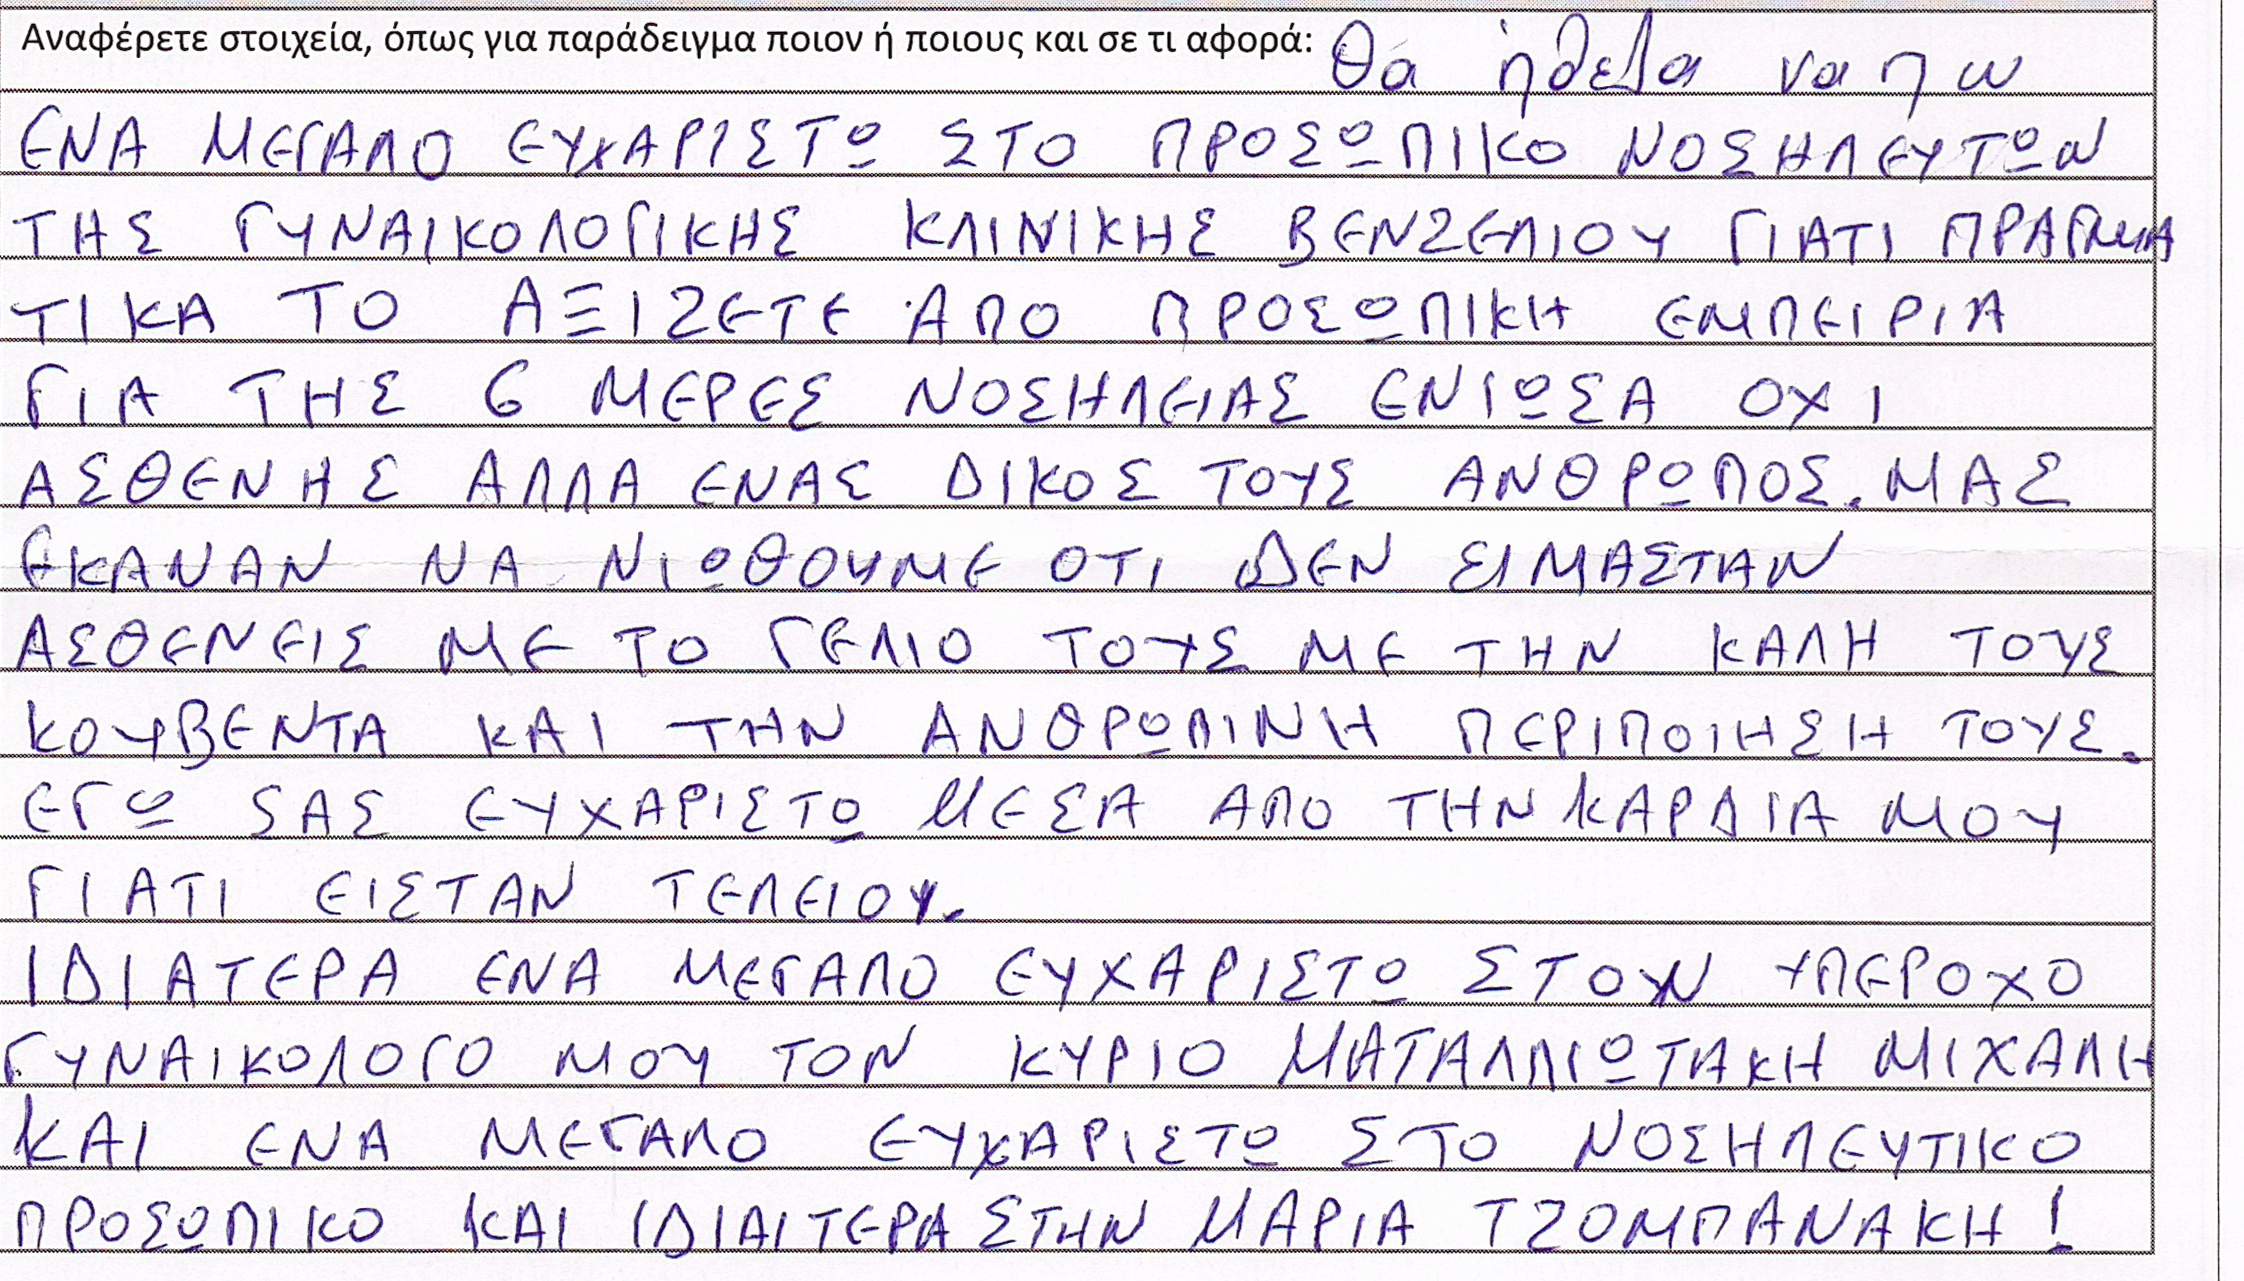 Αναφέρετε στοιχεία, όπως για παράδειγμα ποιον ή ποιους και σε τι αφορά: θα ήθελα να πω
ΕΝΑ ΜΕΓΑΛΟ ΕΥΧΑΡΙΣΤΩ ΣΤΟ ΠΡΟΣΩΠΙΚΟ ΝΟΣΗΛΕΥΤΩΝ
ΤΗΣ ΓΥΝΑΙΚΟΛΟΓΙΚΗΣ ΚΛΙΝΙΚΗΣ ΒΕΝΖΕΛΙΟΥ ΓΙΑΤΙ ΠΡΑΓΜΑ
ΤΙΚΑ ΤΟ ΑΞΙΖΕΤΕ ΑΠΟ ΠΡΟΣΩΠΙΚΗ ΕΜΠΕΙΡΙΑ
ΓΙΑ ΤΗΣ 6 ΜΕΡΕΣ ΝΟΣΗΛΕΙΑΣ ΕΝΙΩΣΑ ΟΧΙ
ΑΣΘΕΝΗΣ ΑΛΛΑ ΕΝΑΣ ΔΙΚΟΣ ΤΟΥΣ ΑΝΘΡΩΠΟΣ. ΜΑΣ
ΕΚΑΝΑΝ ΝΑ ΝΙΩΘΟΥΜΕ ΟΤΙ ΔΕΝ ΕΙΜΑΣΤΑΝ
ΑΣΘΕΝΕΙΣ ΜΕ ΤΟ ΓΕΛΙΟ ΤΟΥΣ ΜΕ ΤΗΝ ΚΑΛΗ ΤΟΥΣ
ΚΟΥΒΕΝΤΑ ΚΑΙ ΤΗΝ ΑΝΘΡΩΠΙΝΗ ΠΕΡΙΠΟΙΗΣΗ ΤΟΥΣ.
ΕΓΩ ΣΑΣ ΕΥΧΑΡΙΣΤΩ ΜΕΣΑ ΑΠΟ ΤΗΝ ΚΑΡΔΙΑ ΜΟΥ
ΓΙΑΤΙ ΕΙΣΤΑΝ ΤΕΛΕΙΟΥ.
ΙΔΙΑΤΕΡΑ ΕΝΑ ΜΕΓΑΛΟ ΕΥΧΑΡΙΣΤΩ ΣΤΟΝ ΥΠΕΡΟΧΟ
ΓΥΝΑΙΚΟΛΟΓΟ ΜΟΥ ΤΟΝ ΚΥΡΙΟ ΜΑΤΑΛΛΙΩΤΑΚΗ ΜΙΧΑΛΗ
ΚΑΙ ΕΝΑ ΜΕΓΑΛΟ ΕΥΧΑΡΙΣΤΩ ΣΤΟ ΝΟΣΗΛΕΥΤΙΚΟ
ΠΡΟΣΩΠΙΚΟ ΚΑΙ ΙΔΙΑΙΤΕΡΑ ΣΤΗΝ ΜΑΡΙΑ ΤΖΟΜΠΑΝΑΚΗ!